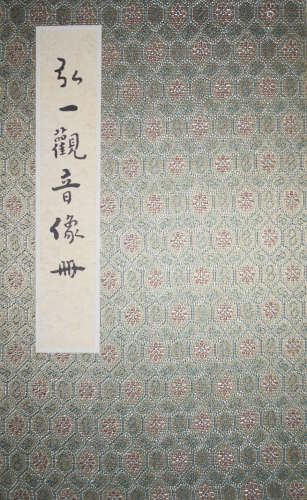 弘一觀音像冊